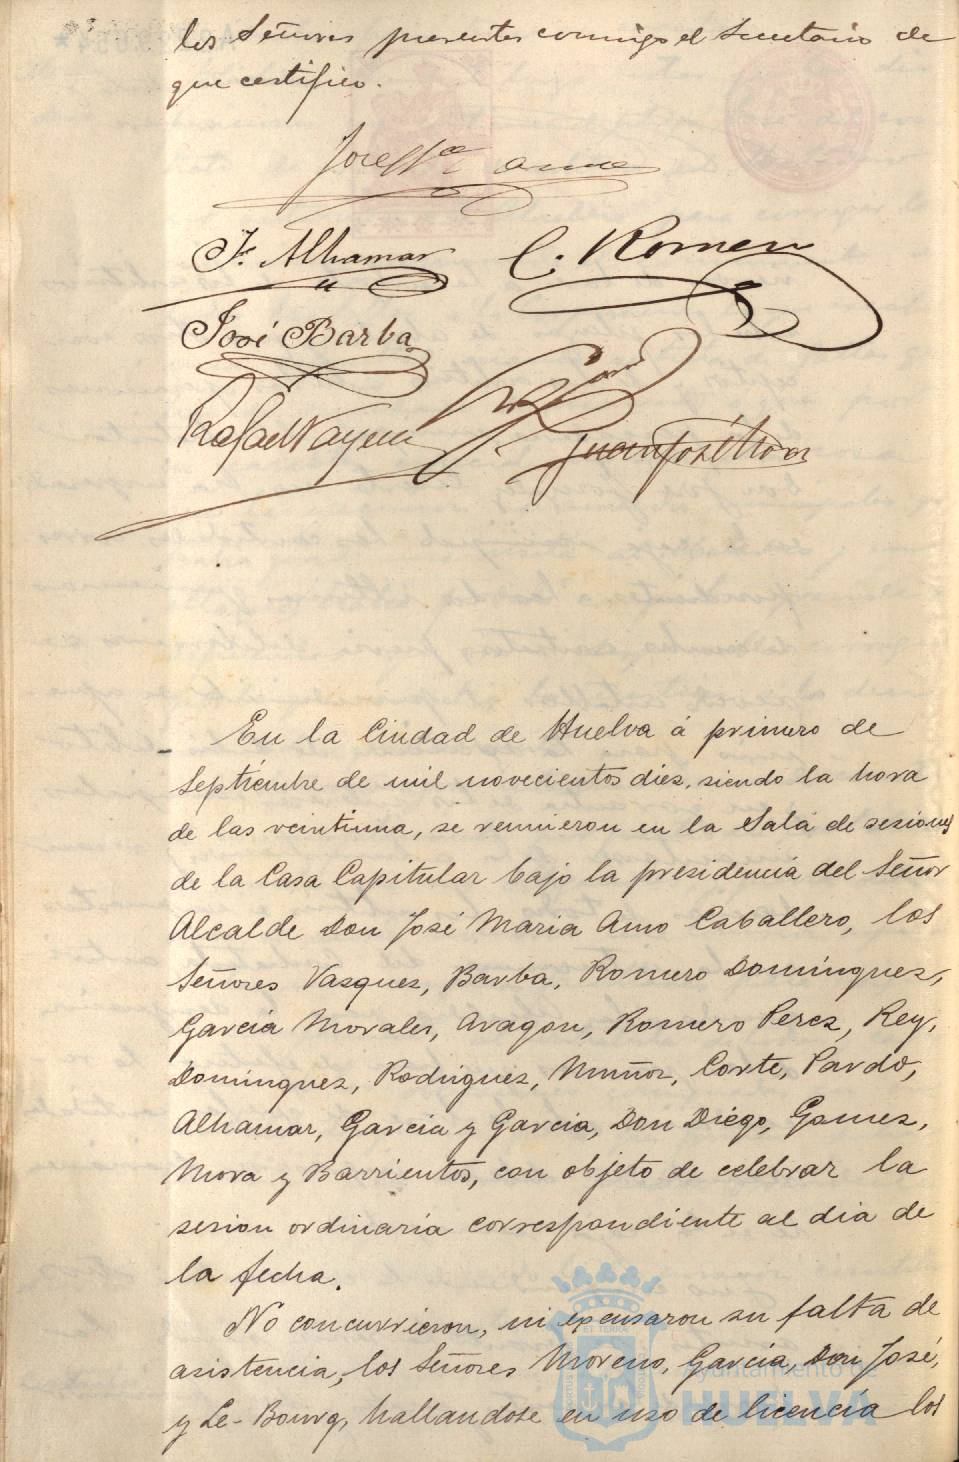 los Señores presentes conmigo el Secretario de
que certifico.
José Mª Amo
F. Alhamar C. Romero
José Barba
Rafael Vazquez
Juan José Mora
En la Ciudad de Huelva á primero de
Septiembre de mil novecientos diez, siendo la hora
de las veintiuna, se reunieron en la Sala de sesiones
de la Casa Capitular bajo la presidencia del Señor
Alcalde Don José Maria Amo Caballero, los
Señores Vazquez, Barba, Romero Domínguez,
Garcia Morales, Aragon, Romero Perez, Rey,
Domínguez, Rodriguez, Muñoz, Corte, Pardo,
Alhamar, Garcia y Garcia, Don Diego, Gomez,
Mora y Barrientos, con objeto de celebrar la
sesion ordinaria correspondiente al dia de
la fecha.
No concurrieron, ni excusaron su falta de
asistencia, los Señores Moreno, Garcia, Don José,
y Le-Bourg, hallandose en uso de licencia los
Ayuntamiento de
HUELVA